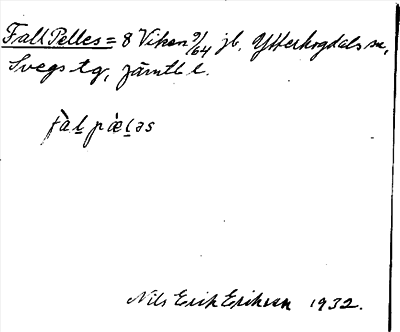 Fall Pelles = 8 Viken 9/64 jb. Ytterhogdals sn,
Svegs tg, Jämtl l.
fàl pæ̀ləs
Nils Erik Erikson 1932.